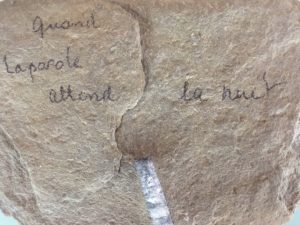 Quand
la parole
attend la nuit